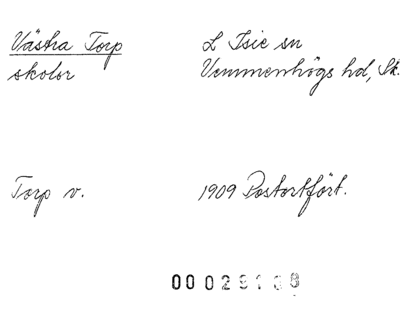 Västra Torp L Isie sn
skolor Vemmenhögs hd, Sk.
Torp v. 1909 Postortfört.